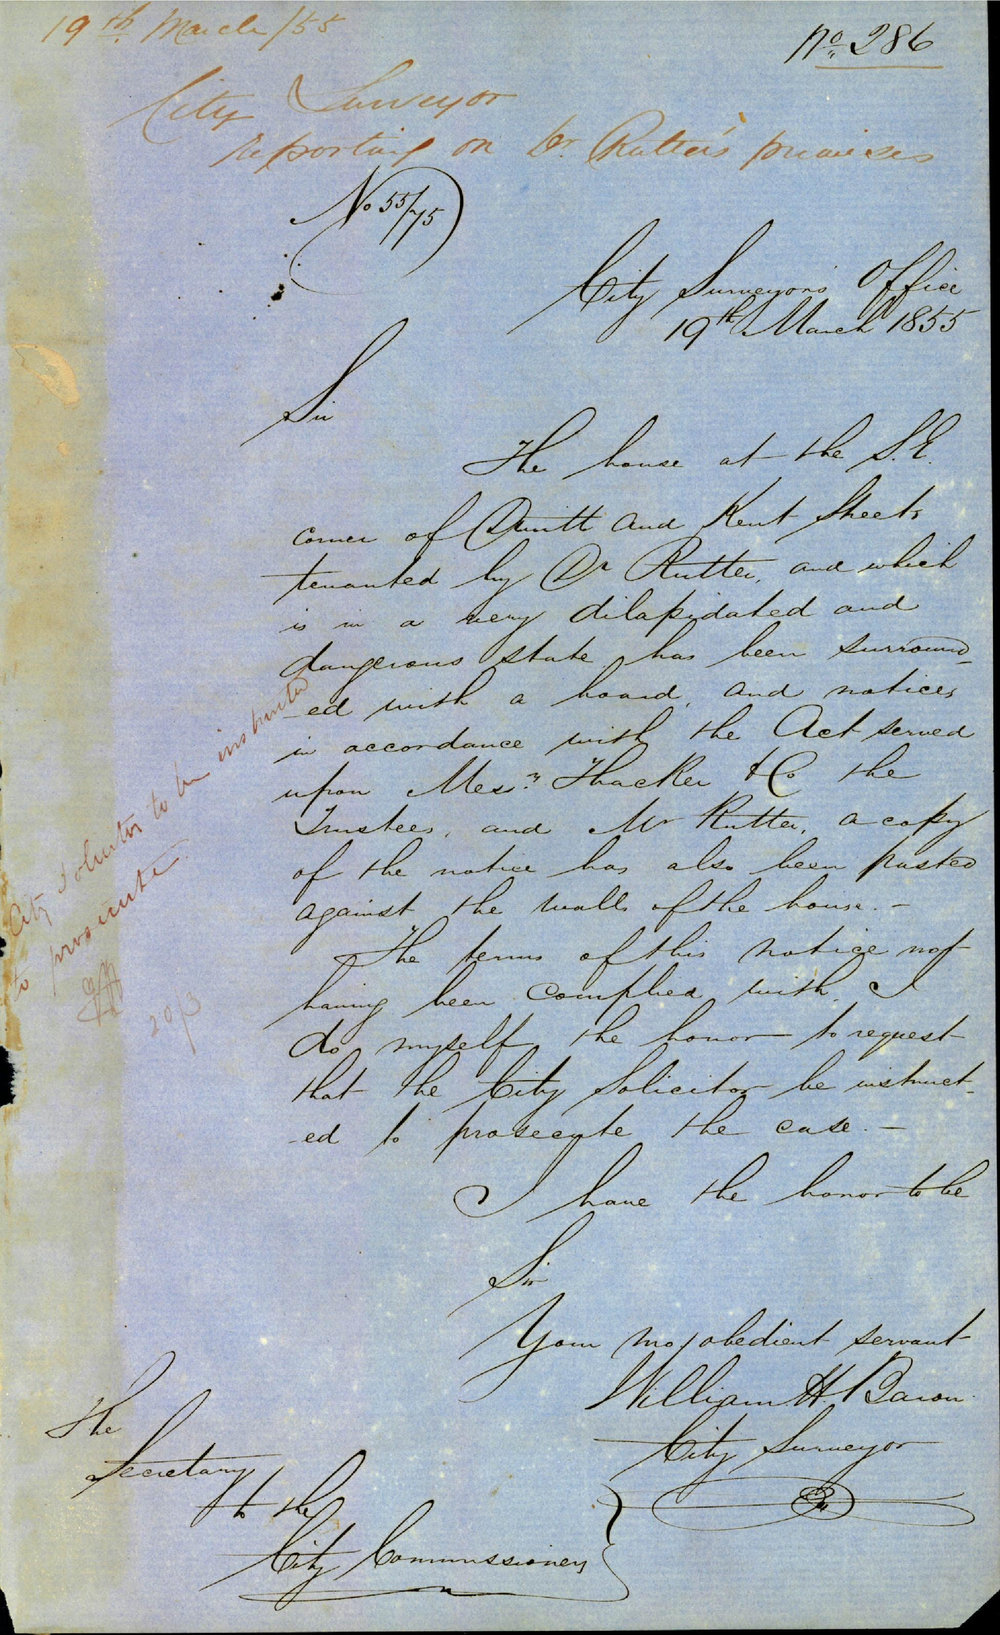 19th March/55
No. 286
City Surveyor
reporting on Dr. Rutter's premises
No 55/75
City Surveyor's Office
19th March 1855
Sir
The house at the S.E.
corner of Druitt and Kent Streets
tenanted by Dr Rutter, and which
is in a very dilapidated and
dangerous state has been surround-
-ed with a hoard, and notices
in accordance with the Act served
upon Messrs Thacker & Co the
Trustees, and Mr Rutter, a copy
of the notice has also been pasted
against the walls of the house. -
The terms of this notice not
having been complied with, I
do myself the honor to request
that the City Solicitor be instruct-
-ed to prosecute the case. -
I have the honor to be
Sir
Your mo. obedient servant
William H. Baron
City Surveyor
The
Secretary
to the
City Commissioners
City Solicitor to be instructed
to prosecute
20/3